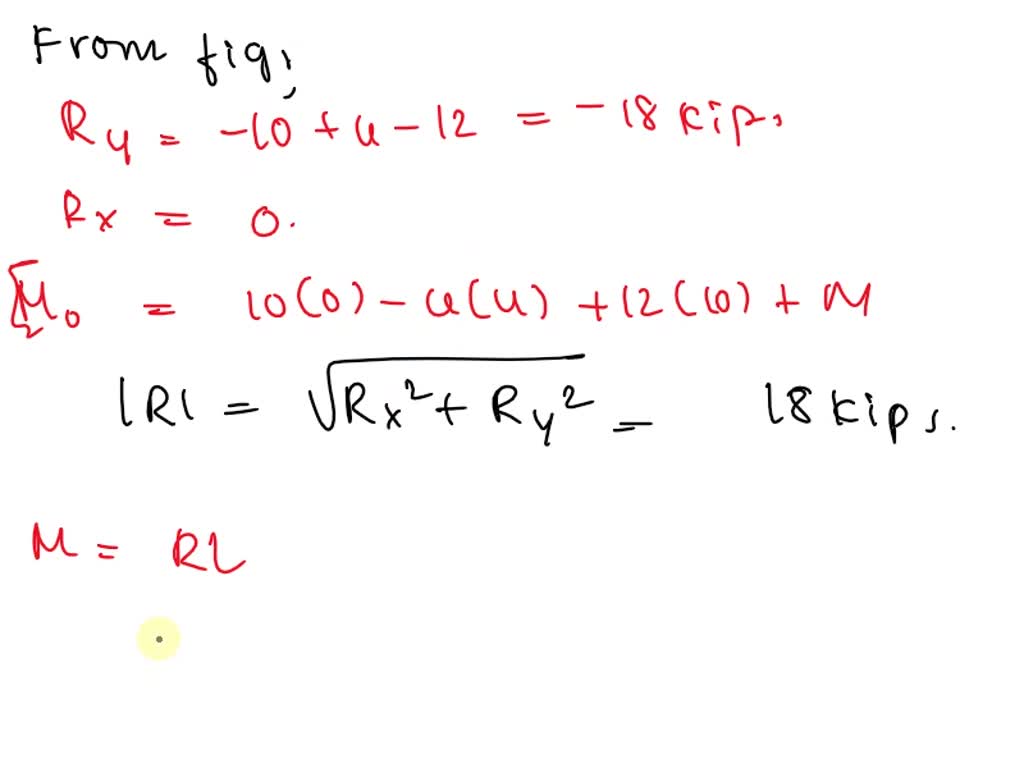 From fig,
Ry = -10 + 4 - 12 = -18 kip,
Rx = 0.
M0 = 10(0) - 4(4) + 12(10) + M
|R| = √Rx² + Ry² = 18 kips.
M = RL